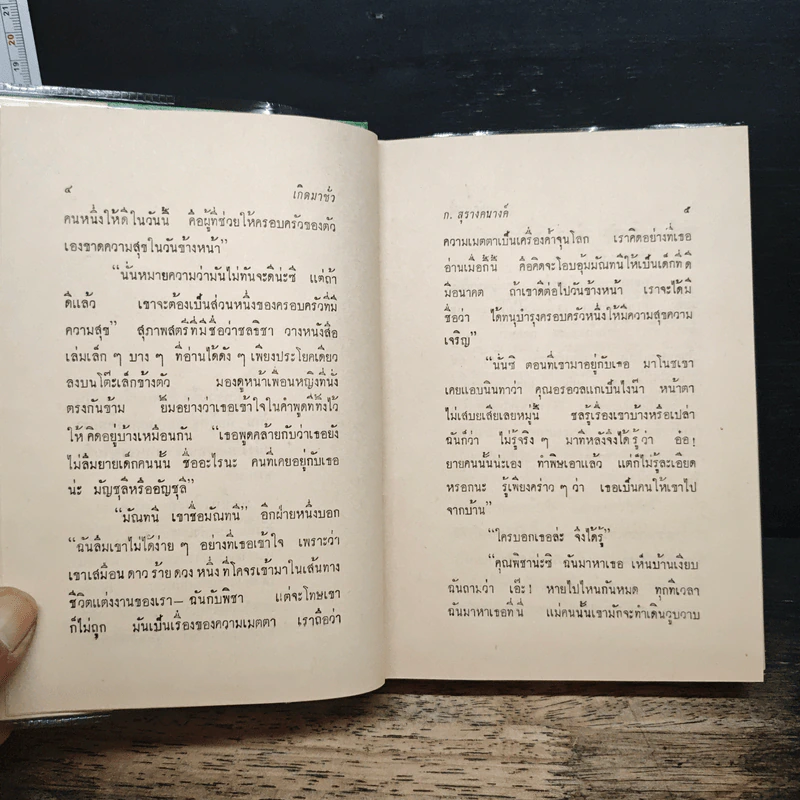 21
20
19
๔ เกิดมาชั่ว
คนหนึ่งให้ดีในวันนี้ คือผู้ที่ช่วยให้ครอบครัวของตัว
เองขาดความสุขในวันข้างหน้า”
“นั่นหมายความว่ามันไม่ทันจะดีน่ะซิ แต่ถ้า
ดีแล้ว เขาจะต้องเป็นส่วนหนึ่งของครอบครัวที่มี
ความสุข” สุภาพสตรีที่มีชื่อว่าชลธิชา วางหนังสือ
เล่มเล็ก ๆ บาง ๆ ที่อ่านได้ดัง ๆ เพียงประโยคเดียว
ลงบนโต๊ะเล็กข้างตัว มองดูหน้าเพื่อนหญิงที่นั่ง
ตรงกันข้าม ยิ้มอย่างว่าเธอเข้าใจในคำพูดที่ทิ้งไว้
ให้คิดอยู่บ้างเหมือนกัน “เธอพูดคล้ายกับว่าเธอยัง
ไม่ลืมยายเด็กคนนั้น ชื่ออะไรนะ คนที่เคยอยู่กับเธอ
น่ะ มัญชุลีหรืออัญชุลี”
“มัณทนี เขาชื่อมัณทนี” อีกฝ่ายหนึ่งบอก
“ฉันลืมเขาไม่ได้ง่าย ๆ อย่างที่เธอเข้าใจ เพราะว่า
เขาเสมือนดาวร้ายดวงหนึ่งที่โคจรเข้ามาในเส้นทาง
ชีวิตแต่งงานของเรา—ฉันกับพิชา แต่จะโทษเขา
ก็ไม่ถูก มันเป็นเรื่องของความเมตตา เราถือว่า
ก. สุรางคนางค์ ๕
ความเมตตาเป็นเครื่องค้ำจุนโลก เราคิดอย่างที่เธอ
อ่านเมื่อกี้นี้ คือคิดจะโอบอุ้มมัณทนีให้เป็นเด็กที่ดี
มีอนาคต ถ้าเขาดีต่อไปวันข้างหน้า เราจะได้มี
ชื่อว่า ได้ทนุบำรุงครอบครัวหนึ่งให้มีความสุขความ
เจริญ”
“นั่นซิ ตอนที่เขามาอยู่กับเธอ มาโนชเขา
เคยแอบนินทาว่า คุณอรอวลแกเป็นไงน้า หน้าตา
ไม่เสบยเสียเลยหมู่นี้ ชลรู้เรื่องเขาบ้างหรือเปล่า
ฉันก็ว่า ไม่รู้จริง ๆ มาทีหลังจึงได้รู้ว่า อ๋อ!
ยายคนนั้นน่ะเอง ทำพิษเอาแล้ว แต่ก็ไม่รู้ละเอียด
หรอกนะ รู้เพียงคร่าว ๆ ว่า เธอเป็นคนให้เขาไป
จากบ้าน”
“ใครบอกเธอล่ะ จึงได้รู้”
“คุณพิชาน่ะซิ ฉันมาหาเธอ เห็นบ้านเงียบ
ฉันถามว่า เอ๊ะ! หายไปไหนกันหมด ทุกทีเวลา
ฉันมาหาเธอที่นี่ แม่คนนั้นเขามักจะทำเดินวูบวาบ